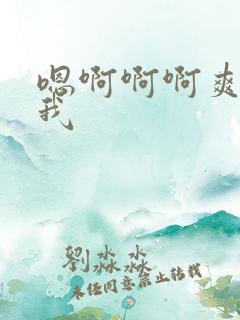 嗯啊啊啊爽
我
劉淼淼
未经同意禁止转载